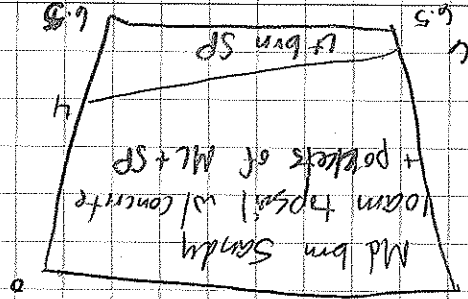 0
Md brn Sandy
loam topsoil w/ concrete
+ pockets of ML + SP
4
Lt brn SP
6
6.5
6.5